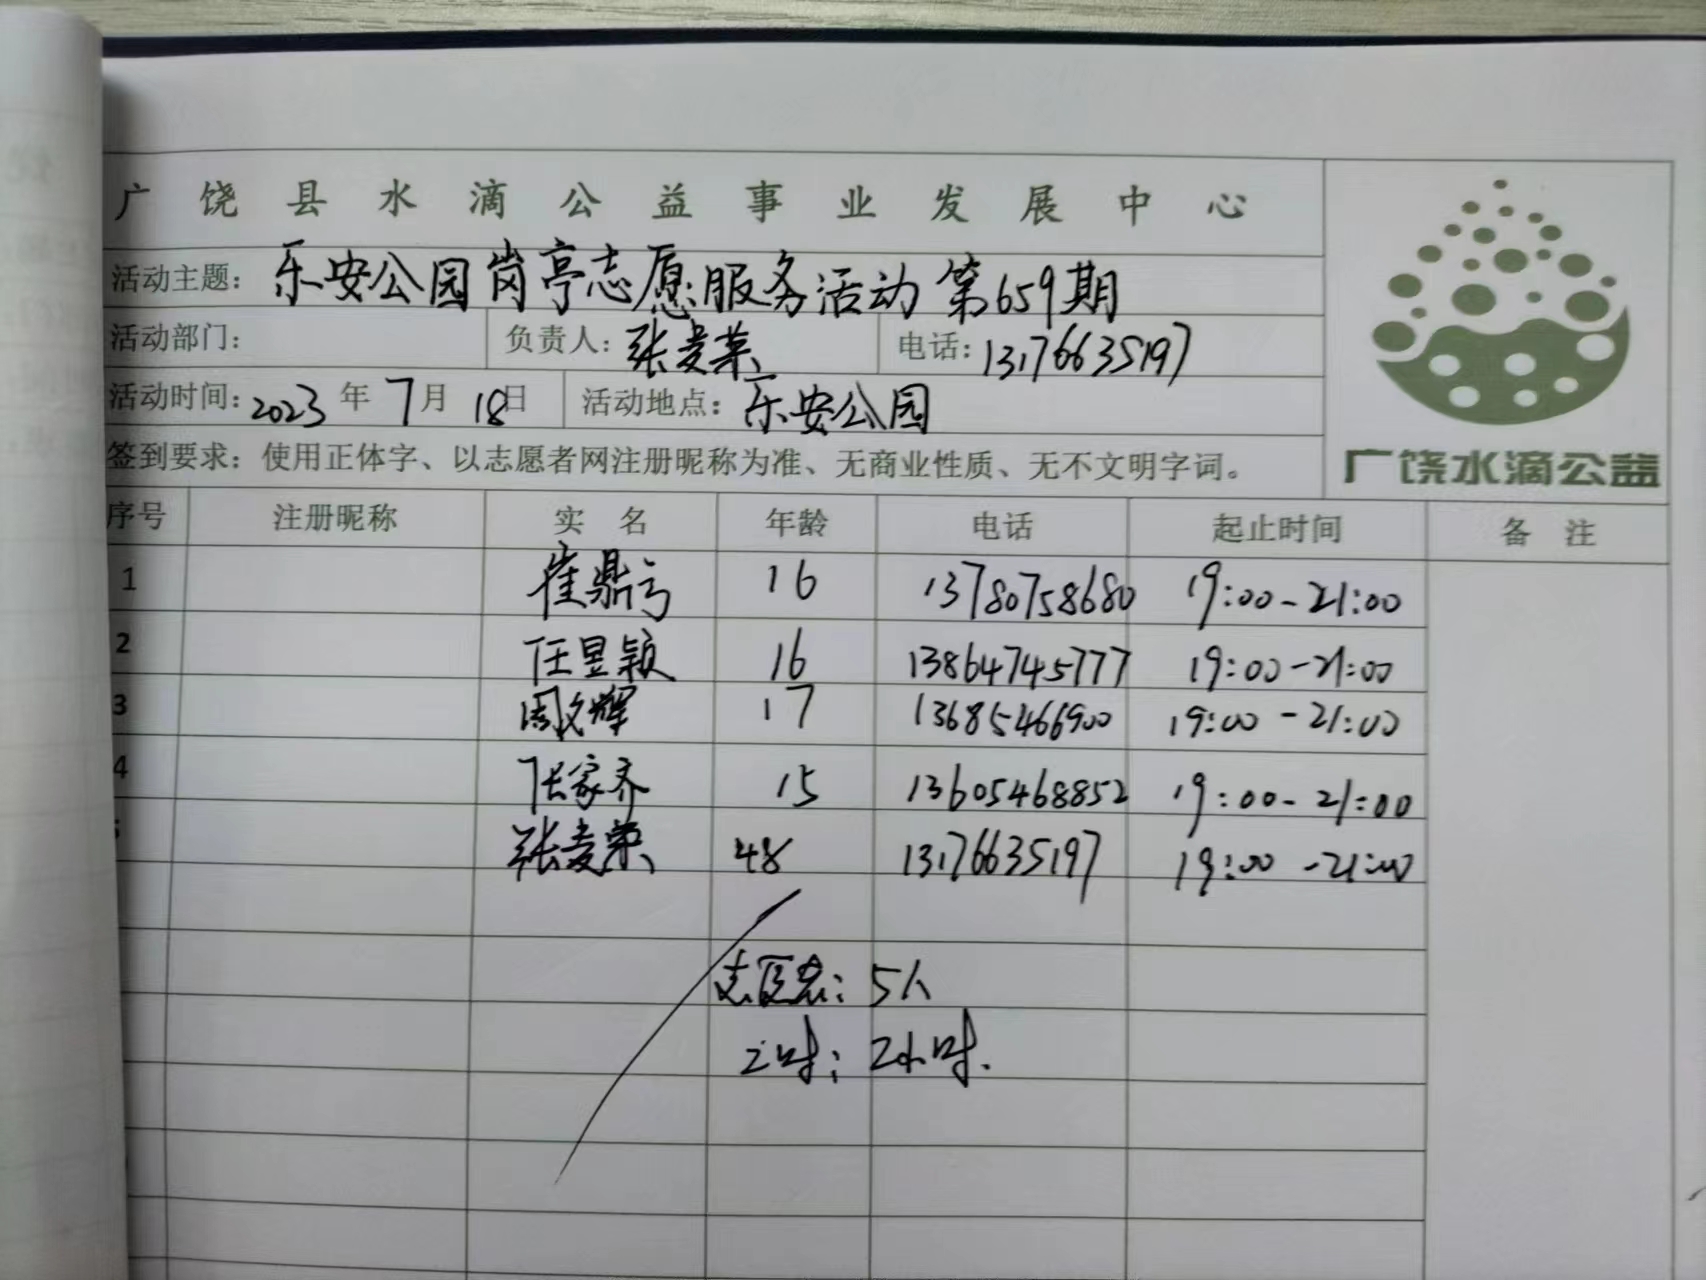 广饶县水滴公益事业发展中心
活动主题：乐安公园岗亭志愿服务活动 第659期
活动部门： 负责人：张麦荣 电话：13176635197
活动时间：2023年7月18日 活动地点：乐安公园
签到要求：使用正体字、以志愿者网注册昵称为准、无商业性质、无不文明字词。
广饶水滴公益
序号 注册昵称 实名 年龄 电话 起止时间 备注
1 崔鼎亏 16 13780758680 19:00-21:00
2 任昱颖 16 13864745777 19:00-21:00
3 周文辉 17 13685466900 19:00-21:00
4 张家齐 15 13605468852 19:00-21:00
张麦荣 48 13176635197 19:00-21:00
志愿者：5人
工时：2小时.